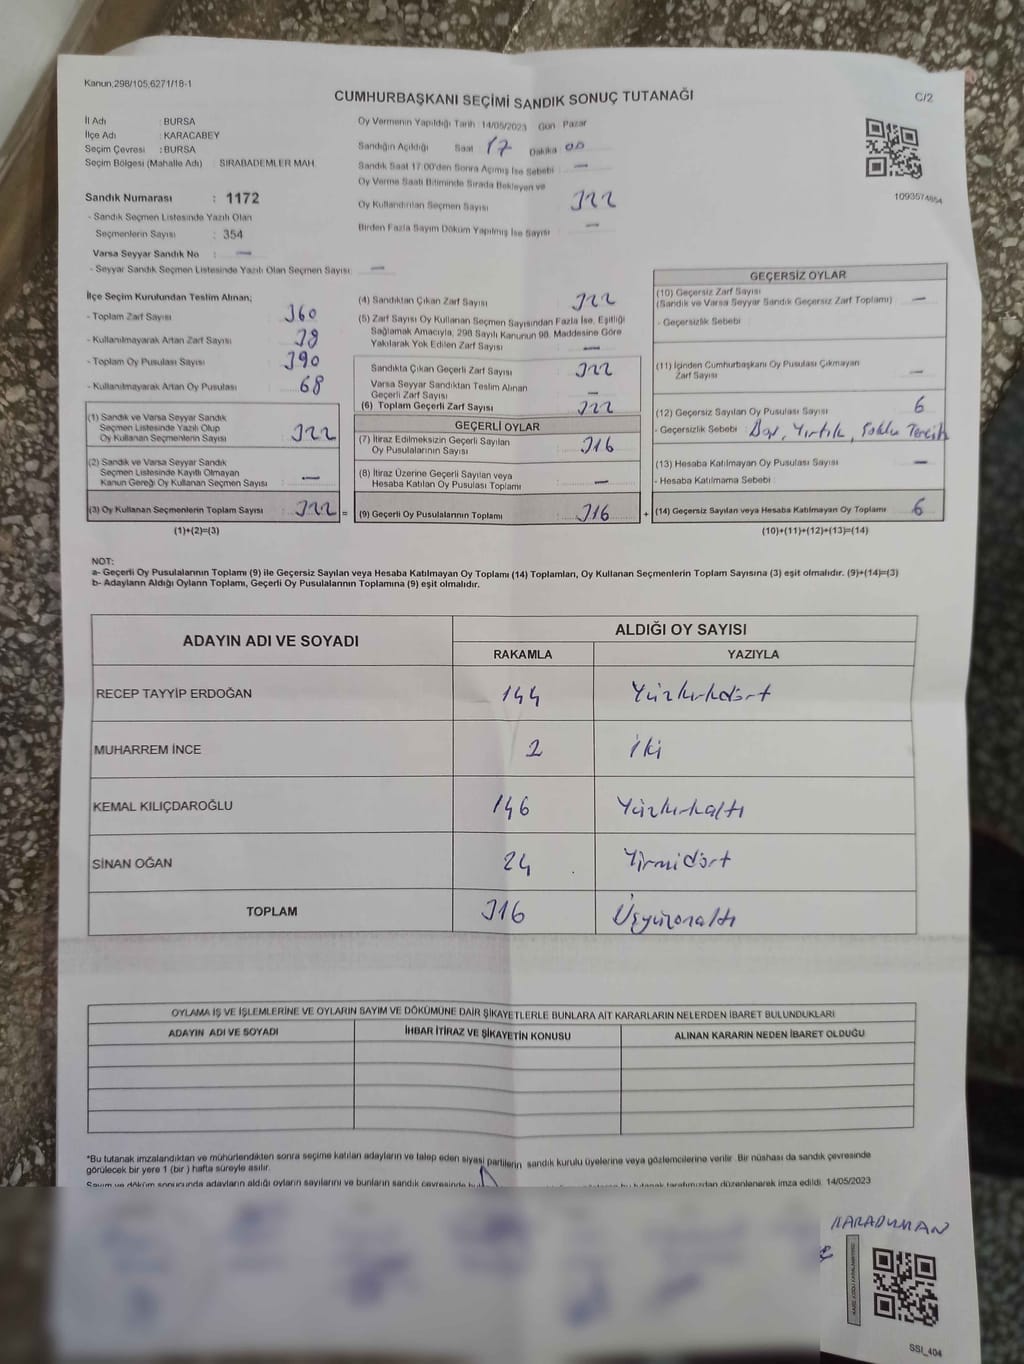 Kanun,298/105,6271/18-1
CUMHURBAŞKANI SEÇİMİ SANDIK SONUÇ TUTANAĞI
C/2
İl Adı : BURSA
İlçe Adı : KARACABEY
Seçim Çevresi : BURSA
Seçim Bölgesi (Mahalle Adı) : SIRABADEMLER MAH.
Sandık Numarası : 1172
- Sandık Seçmen Listesinde Yazılı Olan
Seçmenlerin Sayısı : 354
Varsa Seyyar Sandık No : —
- Seyyar Sandık Seçmen Listesinde Yazılı Olan Seçmen Sayısı: —
Oy Vermenin Yapıldığı Tarih :14/05/2023 Gün Pazar
Sandığın Açıldığı Saat : 17 Dakika 00
Sandık Saat 17:00'den Sonra Açımış İse Sebebi : —
Oy Verme Saati Bitiminde Sırada Bekleyen ve
Oy Kullandırılan Seçmen Sayısı 322
Birden Fazla Sayım Döküm Yapılmış İse Sayısı —
1093574864
İlçe Seçim Kurulundan Teslim Alınan;
- Toplam Zarf Sayısı : 360
- Kullanılmayarak Artan Zarf Sayısı : 38
- Toplam Oy Pusulası Sayısı : 390
- Kullanılmayarak Artan Oy Pusulası : 68
(1) Sandık ve Varsa Seyyar Sandık
Seçmen Listesinde Yazılı Olup
Oy Kullanan Seçmenlerin Sayısı : 322
(2) Sandık ve Varsa Seyyar Sandık
Seçmen Listesinde Kayıtlı Olmayan
Kanun Gereği Oy Kullanan Seçmen Sayısı : —
(3) Oy Kullanan Seçmenlerin Toplam Sayısı : 322 =
(1)+(2)=(3)
(4) Sandıktan Çıkan Zarf Sayısı 322
(5) Zarf Sayısı Oy Kullanan Seçmen Sayısından Fazla İse, Eşitliği
Sağlamak Amacıyla, 298 Sayılı Kanunun 98. Maddesine Göre
Yakılarak Yok Edilen Zarf Sayısı —
Sandıkta Çıkan Geçerli Zarf Sayısı 322
Varsa Seyyar Sandıktan Teslim Alınan
Geçerli Zarf Sayısı —
(6) Toplam Geçerli Zarf Sayısı 322
GEÇERLİ OYLAR
(7) İtiraz Edilmeksizin Geçerli Sayılan
Oy Pusulalarının Sayısı 316
(8) İtiraz Üzerine Geçerli Sayılan veya
Hesaba Katılan Oy Pusulası Toplamı —
(9) Geçerli Oy Pusulalarının Toplamı 316 +
GEÇERSİZ OYLAR
(10) Geçersiz Zarf Sayısı
(Sandık ve Varsa Seyyar Sandık Geçersiz Zarf Toplamı) —
- Geçersizlik Sebebi :
(11) İçinden Cumhurbaşkanı Oy Pusulası Çıkmayan
Zarf Sayısı —
(12) Geçersiz Sayılan Oy Pusulası Sayısı 6
- Geçersizlik Sebebi : Boş, Yırtık, Çoklu Tercih
(13) Hesaba Katılmayan Oy Pusulası Sayısı —
- Hesaba Katılmama Sebebi :
(14) Geçersiz Sayılan veya Hesaba Katılmayan Oy Toplamı 6
(10)+(11)+(12)+(13)=(14)
NOT:
a- Geçerli Oy Pusulalarının Toplamı (9) ile Geçersiz Sayılan veya Hesaba Katılmayan Oy Toplamı (14) Toplamları, Oy Kullanan Seçmenlerin Toplam Sayısına (3) eşit olmalıdır. (9)+(14)=(3)
b- Adayların Aldığı Oyların Toplamı, Geçerli Oy Pusulalarının Toplamına (9) eşit olmalıdır.
ADAYIN ADI VE SOYADI
ALDIĞI OY SAYISI
RAKAMLA YAZIYLA
RECEP TAYYİP ERDOĞAN 144 Yüzkırkdört
MUHARREM İNCE 2 İki
KEMAL KILIÇDAROĞLU 146 Yüzkırkaltı
SİNAN OĞAN 24 Yirmidört
TOPLAM 316 Üçyüzonaltı
OYLAMA İŞ VE İŞLEMLERİNE VE OYLARIN SAYIM VE DÖKÜMÜNE DAİR ŞİKAYETLERLE BUNLARA AİT KARARLARIN NELERDEN İBARET BULUNDUKLARI
ADAYIN ADI VE SOYADI İHBAR İTİRAZ VE ŞİKAYETİN KONUSU ALINAN KARARIN NEDEN İBARET OLDUĞU
*Bu tutanak imzalandıktan ve mühürlendikten sonra seçime katılan adayların ve talep eden siyasi partilerin sandık kurulu üyelerine veya gözlemcilerine verilir. Bir nüshası da sandık çevresinde
görülecek bir yere 1 (bir) hafta süreyle asılır.
Sayım ve döküm sonucunda adayların aldığı oyların sayılarını ve bunların sandık çevresinde bu tutanak tarafımızdan düzenlenerek imza edildi. 14/05/2023
KARADUMAN
SSI_404